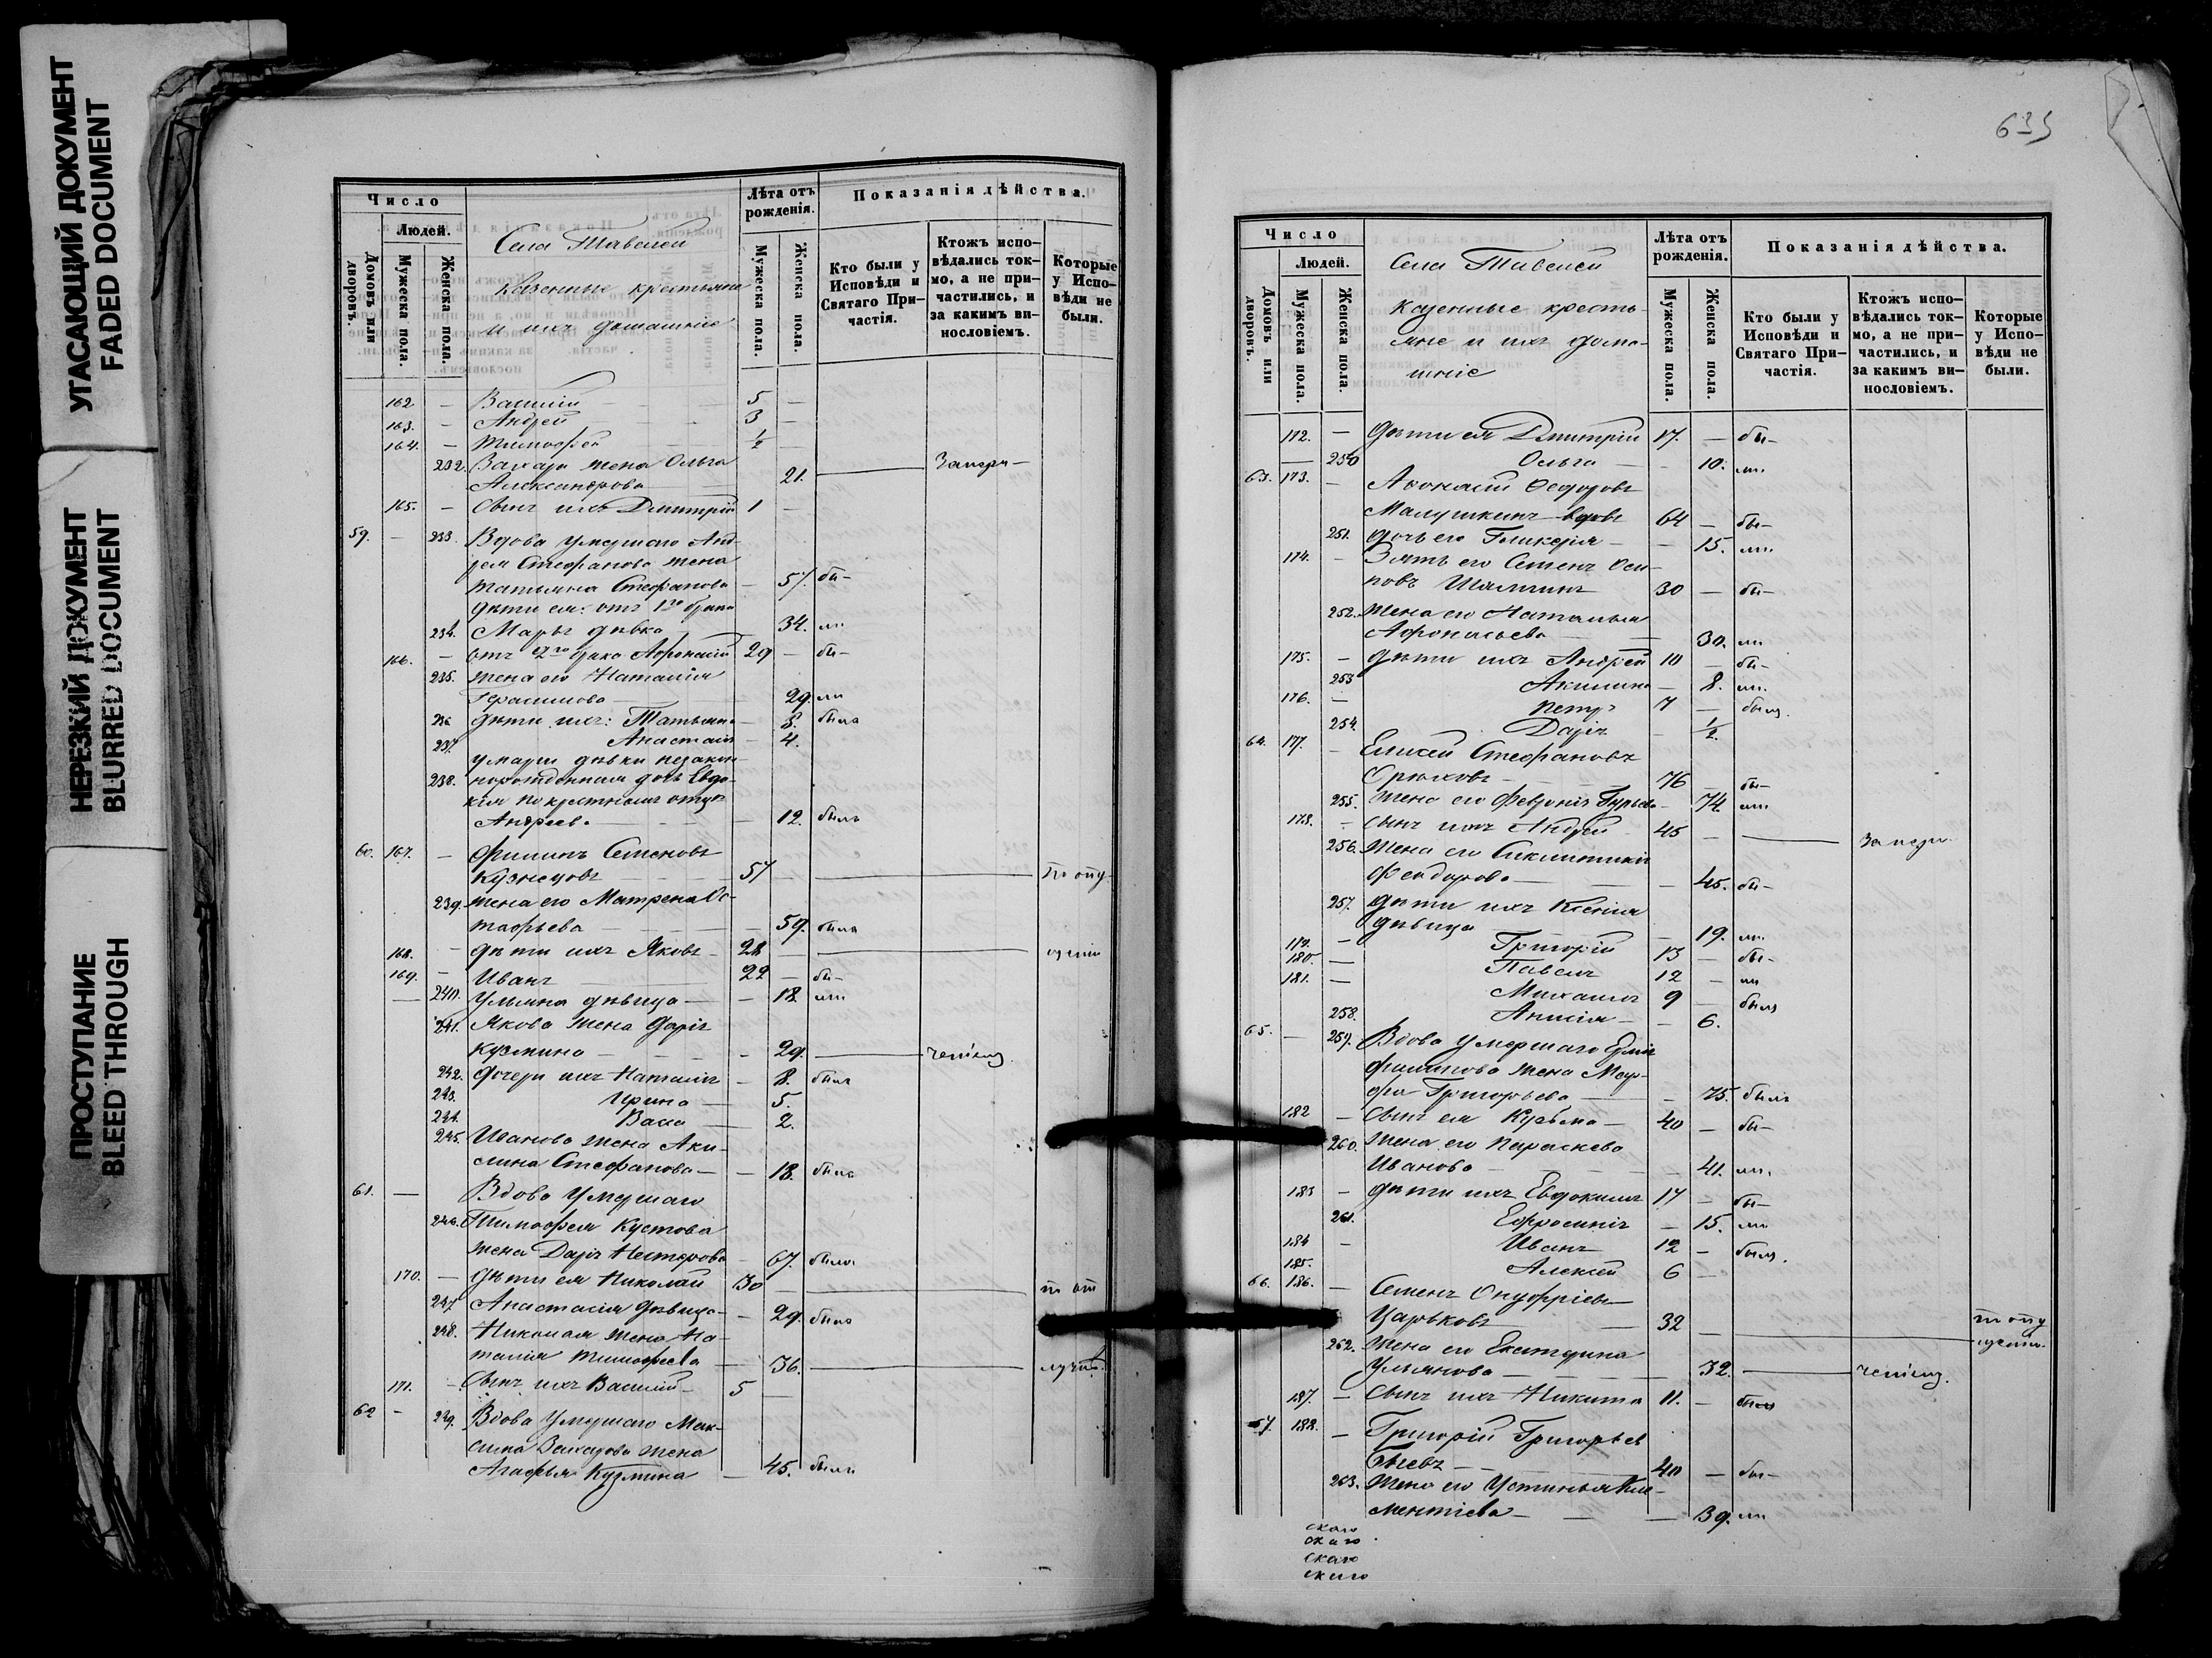 УГАСАЮЩИЙ ДОКУМЕНТ
FADED DOCUMENT
НЕРЕЗКИЙ ДОКУМЕНТ
BLURRED DOCUMENT
ПРОСТУПАНИЕ
BLEED THROUGH
Число
Людей.
Домовъ или дворовъ.
Мужеска пола.
Женска пола.
Села
Казенные крестьяне
и ихъ домашніе
Лѣта отъ рожденія.
Мужеска пола.
Женска пола.
Показанія дѣйства.
Кто были у Исповѣди и Святаго При-частія.
Ктожъ испо-вѣдались ток-мо, а не при-частились, и за какимъ ви-нословіемъ.
Которые у Испо-вѣди не были.
162 — Василій 5 —
163. — Андрей 3 —
164. — Тимофей ½ —
232. Захара жена Ольга
Александрова 21.
165. — Сынъ ихъ Дмитрій 1 —
59. — 233. Вдова умершаго Анд-
рея Стефанова жена
Татьяна Стефанова — 57. бы-
дѣти ея: отъ 1го брака
234. Марья дѣвка 34. ли
166. — отъ 2го брака Афонасій 29 — бы-
235. жена его Наталія
Герасимова 29. ли
236 дѣти ихъ: Татьяна — 8. была
237. Анастасія — 4.
238. норожденная дочь Евдо-
кія по крестному отцу
Андреева — 12. была
60. 167. — Филипъ Семеновъ
Кузнецовъ 57 —
239. жена его Матрена Ос-
тафьева — 59. была
168. — дѣти ихъ Яковъ 28 —
169. — Иванъ 22 — бы-
240. Ульяна дѣвица — 18 ли
241. Якова жена Дарія
Кузмина — 29.
242. дочери ихъ Наталія — 8. была
243. Ирина — 5.
244. Васа 2.
245. Иванова жена Аку-
лина Стефанова — 18. была
61. — Вдова умершаго
246. Тимофея Кустова
жена Дарія Нестерова 67. была
170. — дѣти ея Николай 30 —
247 Анастасія дѣвица — 29. была
248. Николая жена На-
талія Тимофеева 36.
171. — Сынъ ихъ Василій 5 —
62 — 249. Вдова умершаго Мак-
сима Захарова жена
Агафья Кузмина — 45. была
Число
Людей.
Домовъ или дворовъ.
Мужеска пола.
Женска пола.
Села
Казенные кресть-
яне и ихъ дома-
шніе
Лѣта отъ рожденія.
Мужеска пола.
Женска пола.
Показанія дѣйства.
Кто были у Исповѣди и Святаго При-частія.
Ктожъ испо-вѣдались ток-мо, а не при-частились, и за какимъ ви-нословіемъ.
Которые у Испо-вѣди не были.
172. — дѣти ея Дмитрій 17. — бы-
— 250 Ольга — 10. ли.
63. 173. — Афонасій Федоровъ
Малушкинъ вдовъ 64 — бы-
251. дочь его Гликерія — 15. ли.
174. — Зять его Семенъ Оси-
повъ 30 — бы-
252. жена его Наталья
Афонасьева 30. ли
175. — дѣти ихъ Андрей 10 — бы-
253 Акилина — 8. ли.
176. — Петръ 7 — былъ.
254. Дарія — ½.
64. 177. — Елисей Стефановъ
76 — бы-
255. жена его Февронія Гурьева 74. ли
178. — сынъ ихъ Андрей 45 —
256. Жена его Синклитикія
Феодорова — 45. бы-
257. дѣти ихъ Ксенія
дѣвица — 19. ли.
179. — Григорій 13 — бы-
180. — Павелъ 12 — ли
181. — Михаилъ 9 — былъ
258. Анисія — 6.
65. — 259. Вдова умершаго
Филипова жена Мар-
фа Григорьева — 75. была
182 — Сынъ ея Кузьма 40 — бы-
260. Жена его Параскева
Иванова — 41. ли.
183 — дѣти ихъ Евдокимъ 17 — бы-
261. Ефросинія — 15. ли
184 — Иванъ 12 — былъ.
185. Алексей 6 —
66. 186. — Семенъ Онуфріевъ
Царьковъ 32 —
262. Жена его Екатерина
Ульянова 32.
187. — Сынъ ихъ Никита 11. — былъ
67. 188. — Григорій Григорьевъ
40 — бы-
263. Жена его Устинья Кли-
ментіева — 39. ли
скаго
скаго
скаго
скаго